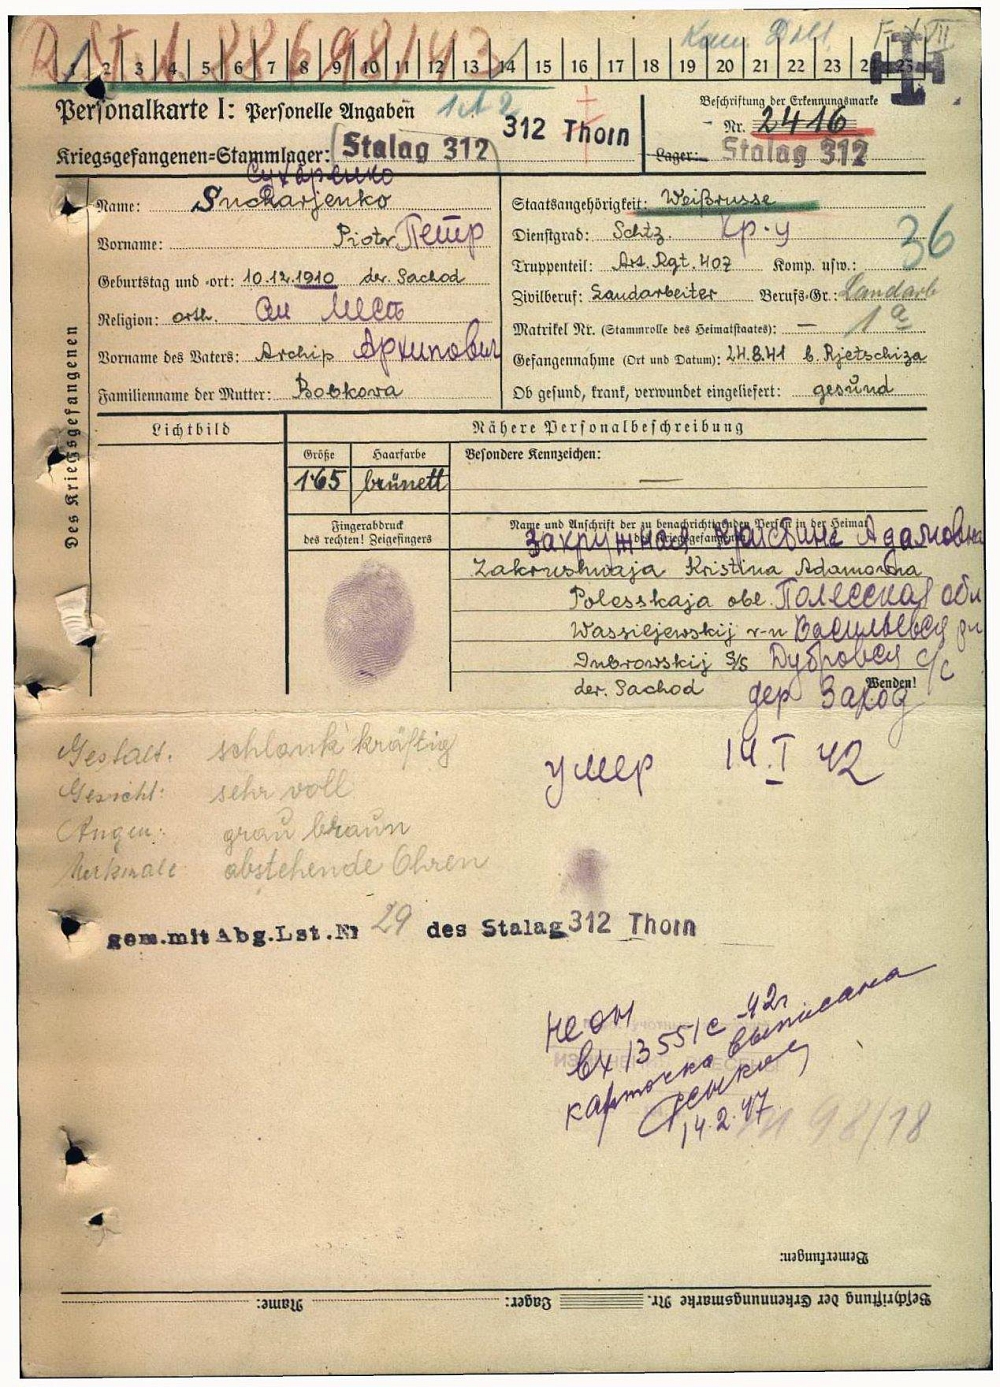 D.St.A. 28698/43
1 2 3 4 5 6 7 8 9 10 11 12 13 14 15 16 17 18 19 20 21 22 23 24 25
Personalkarte I: Personelle Angaben
312 Thorn
Kriegsgefangenen-Stammlager: Stalag 312
Beschriftung der Erkennungsmarke
Nr. 2416
Lager: Stalag 312
Des Kriegsgefangenen
Сухаренко
Name: Sucharjenko
Vorname: Piotr Петр
Geburtstag und -ort: 10.12.1910 der. Sachod
Religion: orth. См Место
Vorname des Vaters: Archip Архипович
Familienname der Mutter: Bobkowa
Staatsangehörigkeit: Weißrusse
Dienstgrad: Schtz. кр-ц
36
Truppenteil: Art. Rgt. 407 Komp. usw.:
Zivilberuf: Landarbeiter Berufs-Gr.: Landarb
1a
Matrikel Nr. (Stammrolle des Heimatstaates): —
Gefangennahme (Ort und Datum): 24.8.41 b. Rjetschiza
Ob gesund, krank, verwundet eingeliefert: gesund
Lichtbild
Nähere Personalbeschreibung
Größe Haarfarbe Besondere Kennzeichen:
1.65 brünett —
Fingerabdruck
des rechten! Zeigefingers
Name und Anschrift der zu benachrichtigenden Person in der Heimat
des Kriegsgefangenen
Закружная Кристина Адамовна
Zakrushnaja Kristina Adamowna
Polesskaja obl. Полесская обл
Wassiljewskij r-n Васильевск рн
Dubrowskij S/S Дубровск с/с
der. Sachod дер Заход
Wenden!
Gestalt: schlank kräftig
Gesicht: sehr voll
Augen: grau braun
Merkmale: abstehende Ohren
умер 14.I 42
gem. mit Abg.Lst.Nr 29 des Stalag 312 Thorn
не он
вх 13551с -42г
карточка выписана
14.2.47
98/18
Bemerkungen:
Beschriftung der Erkennungsmarke Nr. Lager: Name: